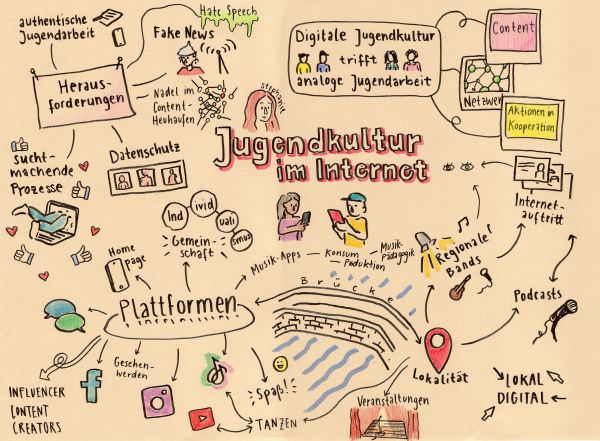 authentische
Jugendarbeit
Hate Speech
Fake News
Heraus-
forderungen
Nadel im
Content-
Heuhaufen
Sucht-
machende
Prozesse
Datenschutz
stephanie
Digitale Jugendkultur
trifft
analoge Jugendarbeit
Content
Netzwerk
Aktionen in
Kooperation
Jugendkultur
im Internet
Ind
ivid
uali
smus
Gemein-
schaft
Home
page
Plattformen
Musik-Apps
Konsum
Produktion
Musik-
Pädagogik
Regionale
Bands
Internet-
auftritt
Podcasts
Brücke
Lokalität
LOKAL
DIGITAL
Veranstaltungen
Gesehen-
werden
Spaß!
TANZEN
INFLUENCER
CONTENT
CREATORS